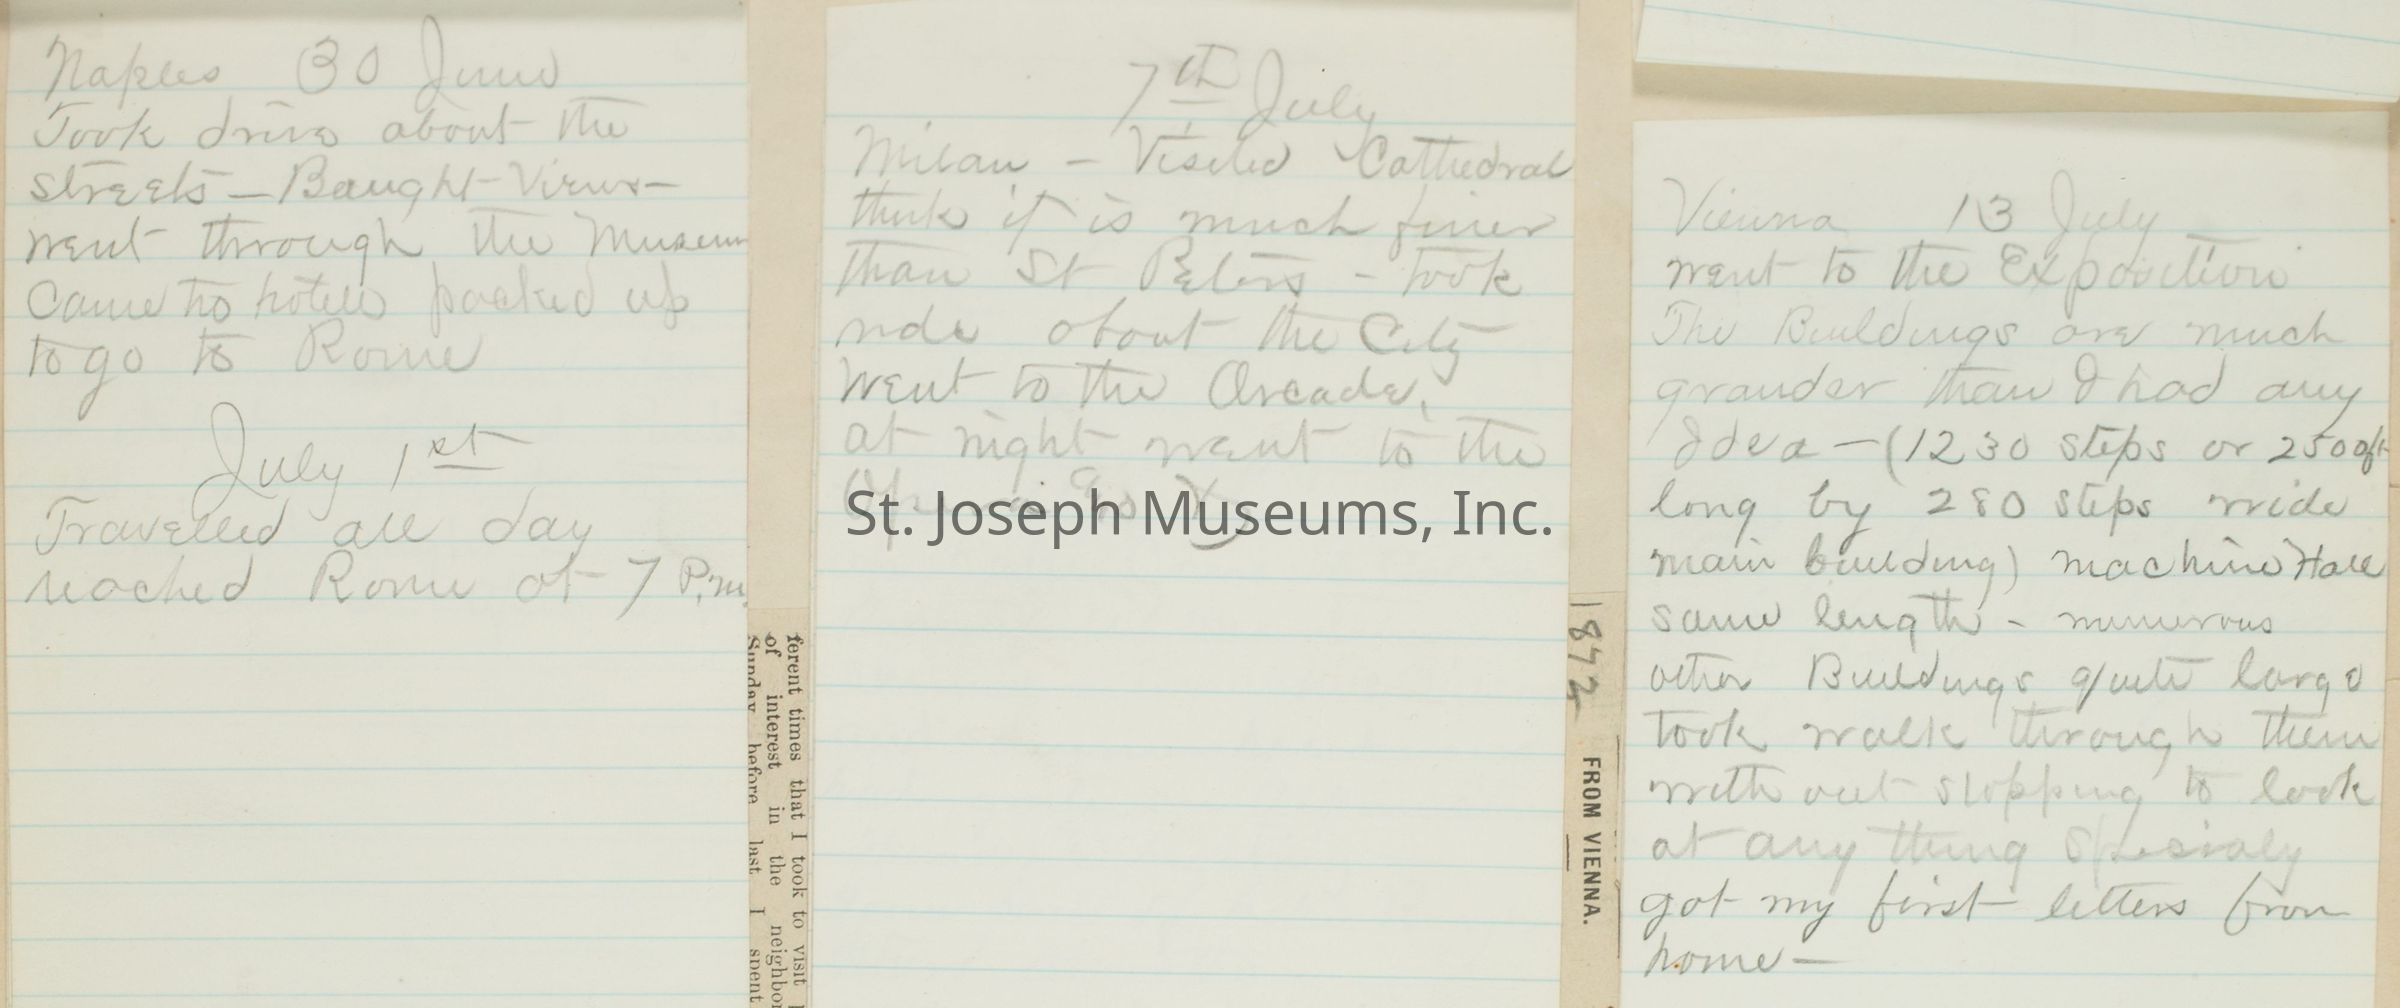 Naples 30 June
Took drive about the
streets – Baught Views –
went through the Museum
Came to hotell packed up
to go to Rome
July 1st
Travelled all day
reached Rome at 7 P.m.
ferent times that I took to visit
of interest in the neighbor
Sunday before last I spent
7th July
Milan – Visited Cathedral
think it is much finer
than St Peters – took
ride about the City
Went to the Arcade.
at night went to the
Opera
St. Joseph Museums, Inc.
1872
FROM VIENNA.
Vienna 13 July
went to the Exposition
The Buildings are much
grander than I had any
Idea – (1230 steps or 2500ft
long by 280 steps wide
main building) machine Hall
same length – numerous
other Buildings quite large
took walk through them
without stopping to look
at any thing Specialy
got my first letters from
home –